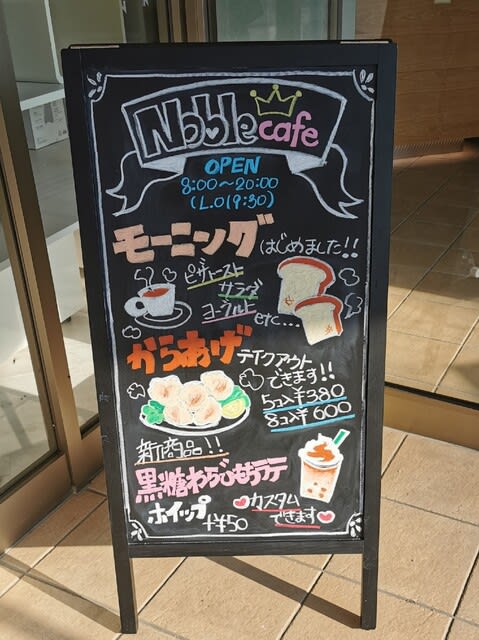 Nobble cafe
OPEN
8:00～20:00
(L.O19:30)
モーニング はじめました!!
ピザトースト
サラダ
ヨーグルト etc...
からあげ テイクアウト
できます!!
5コ入¥380
8コ入¥600
新商品!!
黒糖わらびもちラテ
ホイップ +¥50
カスタム
できます